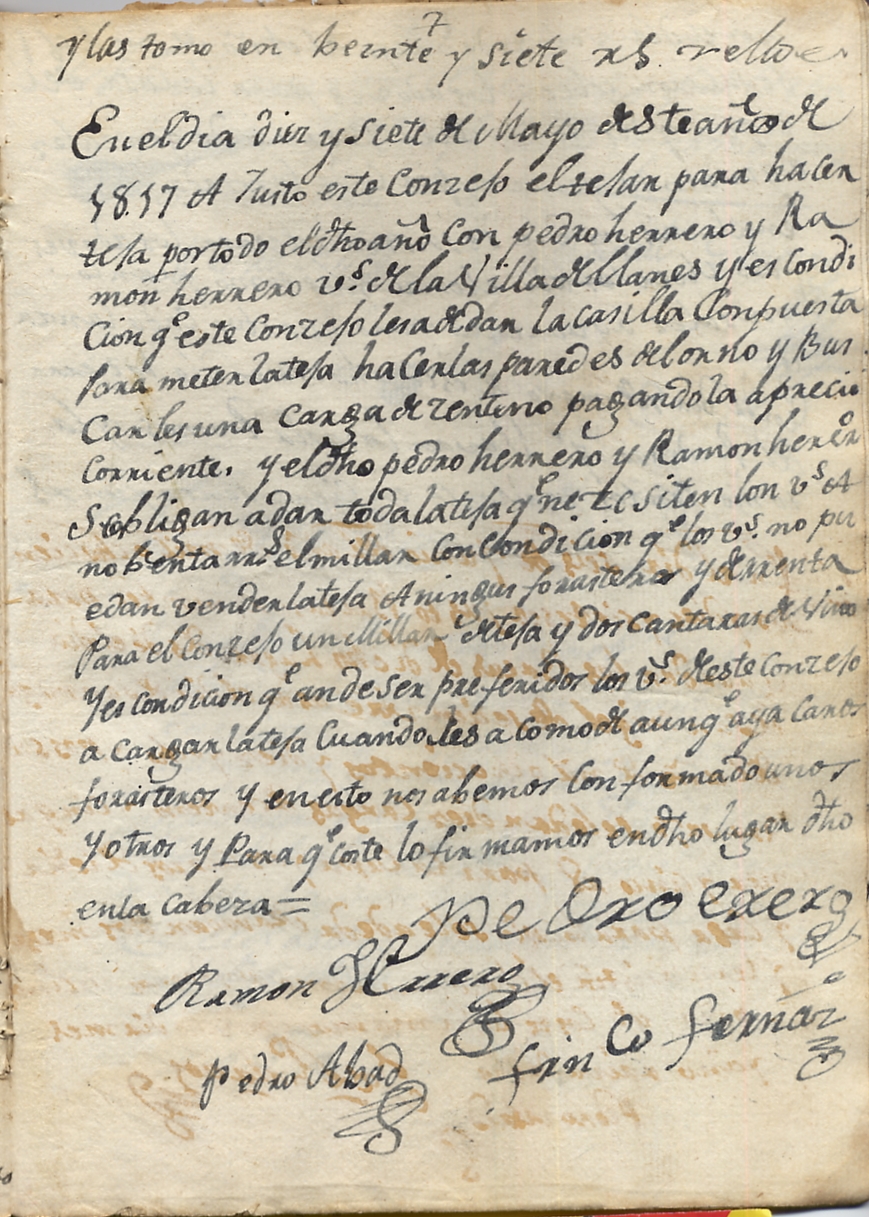 7
y las tomo en beinte y siete rs. vello
En el dia diez y siete de Mayo deste año de
1817 A Justo este Conzejo el tejar para hacer
teja por todo el dho año Con pedro herrero y Ra
mon herrero vs. de la Villa de llanes y es Condi
cion qe este Conzejo les a de dar la casilla Conpuesta
para meter la teja hacer las paredes del orno y Bus
Car les una Carga de zenteno pagandola a precio
Corriente. y el dho pedro herrero y Ramon herrero
Se obligan a dar toda la teja qe nezesiten los vs A
nobenta rrs. el millar Con Condicion qe los vs. no pu
edan vender la teja A ningus forasteros y de rrenta
Para el Conzejo un Millar de teja y dos Cantaras de Vino
Y es condicion qe an de ser preferidos los vs. deste Conzejo
a Cargar la teja Cuando les a comode aunqe aya Caros
forasteros y en esto nos abemos Con formado unos
Y otros y Para qe coste lo firmamos en dho lugar dho
en la Cabeza =
Pedro erero
Ramon Herrero
Pedro Abad
franco fernaz